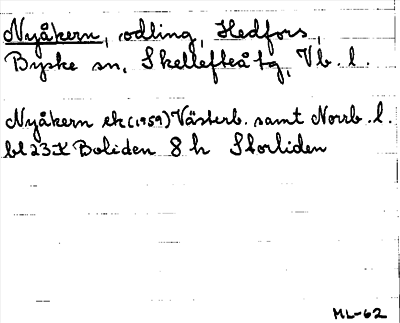 Nyåkern, odling, Hedfors,
Byske sn, Skellefteå tg, Vb. l.
Nyåkern ek (1959) Västerb. samt Norrb. l.
bl 23K Boliden 8 h Storliden
ML-62